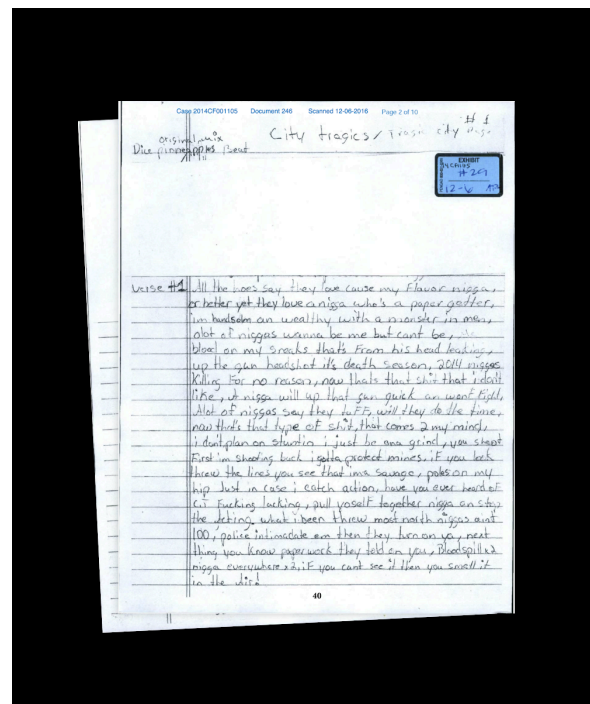 Case 2014CF001105 Document 246 Scanned 12-06-2016 Page 2 of 10
# 1
original mix
City tragics / city
Dice pinneapples Beat
EXHIBIT
# 269
12-6
Verse #1 All the hoes say they love cause my Flavor nigga,
or better yet they love a nigga who's a paper getter,
im handsolm an wealthy with a monster in men,
alot of niggas wanna be me but cant be,
blood on my sneaks thats From his head leaking,
up the gun headshot it's death season, 2014 niggas
Killing For no reason, now thats that shit that i don't
like, A nigga will up that gun quick an wont Fight,
Alot of niggas say they tuFF, will they do the time,
now that's that type of shit, that comes 2 my mind,
i don't plan on stuntin i just be ona grind, you shoot
First im shooting back i gotta protect mines, iF you look
threw the lines you see that ima savage, poles on my
hip Just in case i catch action, have you ever heard oF
C.T Fucking lacking, pull yoself together nigga an stop
the Acting, what i been threw most north niggas aint
100, police intimadate em then they turn on ya, next
thing you Know paperwork they told on you, Bloodspill x2
nigga everywhere x2, iF you cant see it then you smell it
in the air!
40